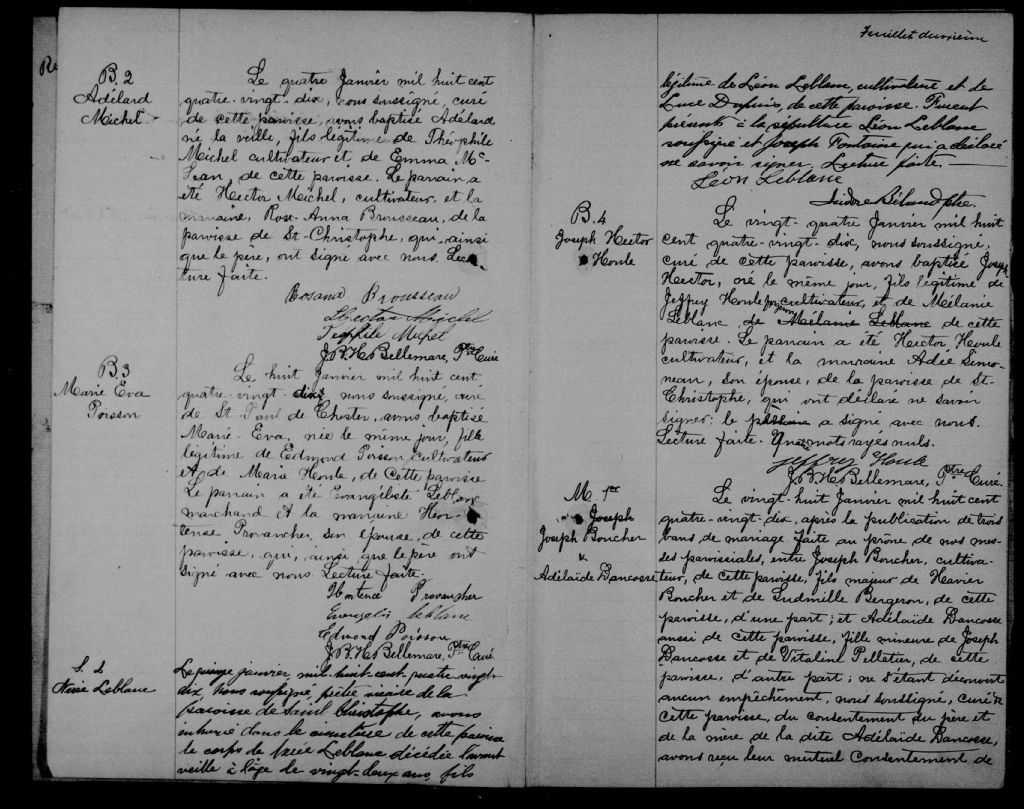 Feuillet deuxième
B. 2
Adélard
Michel
Le quatre Janvier mil huit cent
quatre-vingt-dix, nous soussigné, curé
de cette paroisse, avons baptisé Adélard
né la veille, fils légitime de Théophile
Michel cultivateur et de Emma Mc-
Lean, de cette paroisse. Le parrain a
été Hector Michel, cultivateur, et la
marraine, Rose-Anna Brousseau, de la
paroisse de St-Christophe, qui, ainsi
que le père, ont signé avec nous. Lec-
ture faite.
Rosana Brousseau
Hector Michel
Teophile Michel
J. B. H. Bellemare, Ptre Curé
B. 3
Marie Eva
Poisson
Le huit Janvier mil huit cent
quatre-vingt-dix, nous soussigné, curé
de St Paul de Chester, avons baptisé
Marie-Eva, née le même jour, fille
légitime de Edmond Poisson cultivateur
et de Marie Houle, de cette paroisse
Le parrain a été Evangéliste Leblanc
marchand et la marraine Hor-
tense Provancher, son épouse, de cette
paroisse, qui, ainsi que le père ont
signé avec nous. Lecture faite.
Hortence Provancher
Evangelis Leblanc
Edmord Poisson
J. B. H. Bellemare, Ptre Curé
S. 1
Leblanc
Le quinze janvier, mil-huit-cent quatre vingt-
dix, nous soussigné, prêtre vicaire de la
paroisse de Saint Christophe, avons
inhumé dans le cimetière de cette paroisse
le corps de Leblanc décédée l'avant
veille à l'âge de vingt-deux ans, fils
légitime de Léon Leblanc, cultivateur et de
Luce Dupuis, de cette paroisse. Furent
présents à la sépulture Léon Leblanc
soussigné et Joseph Fontaine qui a déclaré
ne savoir signer. Lecture faite.
Léon Leblanc
Isidore Béland ptre.
B. 4
Joseph Hector
Houle
Le vingt-quatre Janvier mil huit
cent quatre-vingt-dix, nous soussigné,
curé de cette paroisse, avons baptisé Joseph
Hector, né le même jour, fils légitime de
Jeffrey Houle cultivateur, et de Mélanie
Leblanc, de Mélanie Leblanc de cette
paroisse. Le parrain a été Hector Houle
cultivateur, et la marraine Adée Simo-
neau, son épouse, de la paroisse de St-
Christophe, qui ont déclaré ne savoir
signer; le a signé avec nous.
Lecture faite. mots rayés nuls.
Jeffrey Houle
J. B. H. Bellemare, Ptre Curé.
M. 1er
Joseph
Joseph Boucher
&
Adélaïde Dancosse
Le vingt-huit Janvier mil huit cent
quatre-vingt-dix, après la publication de trois
bans de mariage faite au prône de nos mes-
ses paroissiales, entre Joseph Boucher, cultiva-
teur, de cette paroisse, fils majeur de Xavier
Boucher et de Ludmille Bergeron, de cette
paroisse, d'une part; et Adélaïde Dancosse
aussi de cette paroisse, fille mineure de Joseph
Dancosse et de Vitaline Pelletier, de cette
paroisse, d'autre part; ne s'étant découvert
aucun empêchement, nous soussigné, curé de
cette paroisse, du consentement du père et
de la mère de la dite Adélaïde Dancosse,
avons reçu leur mutuel consentement de